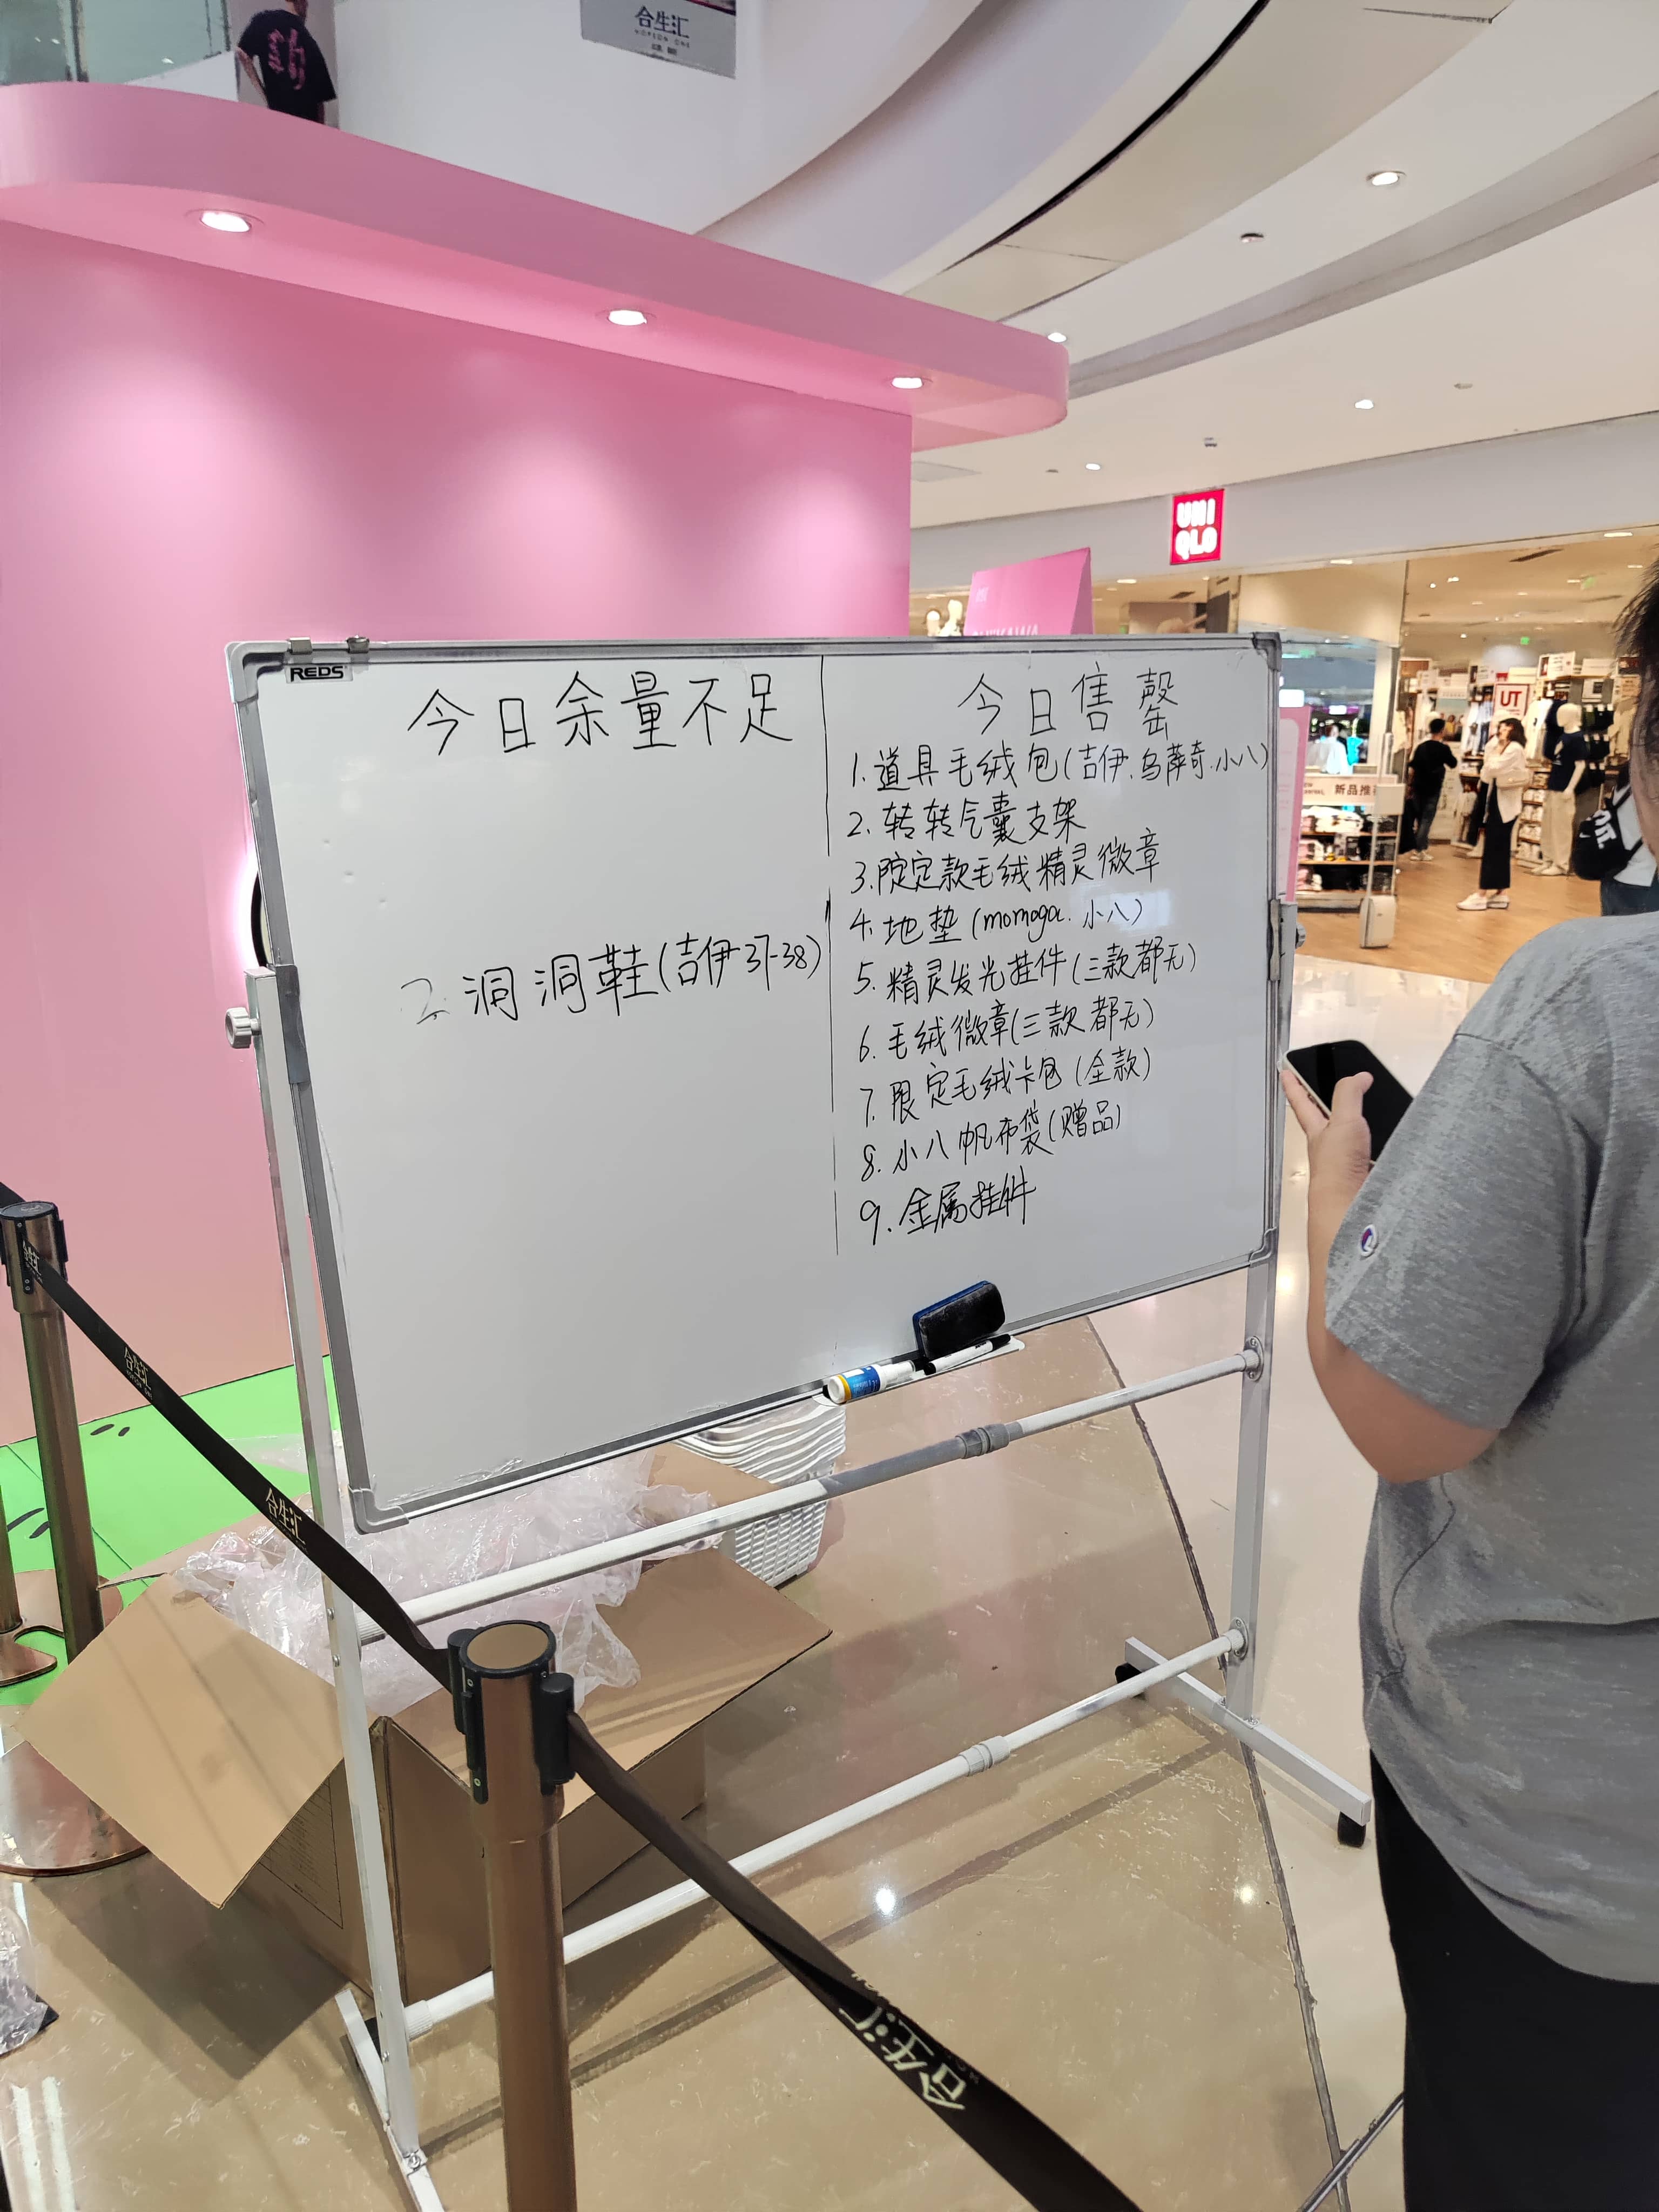 合生汇
HOPSON ONE
UNI
QLO
UT
新品推
REDS
今日余量不足
2. 洞洞鞋(吉伊37-38)
今日售罄
1. 道具毛绒包(吉伊.乌萨奇.小八)
2. 转转气囊支架
3. 限定款毛绒精灵徽章
4. 地垫(momoga. 小八)
5. 精灵发光挂件(三款都无)
6. 毛绒徽章(三款都无)
7. 限定毛绒卡包(全款)
8. 小八帆布袋(赠品)
9. 金属挂件
合生汇
合生汇
合生汇